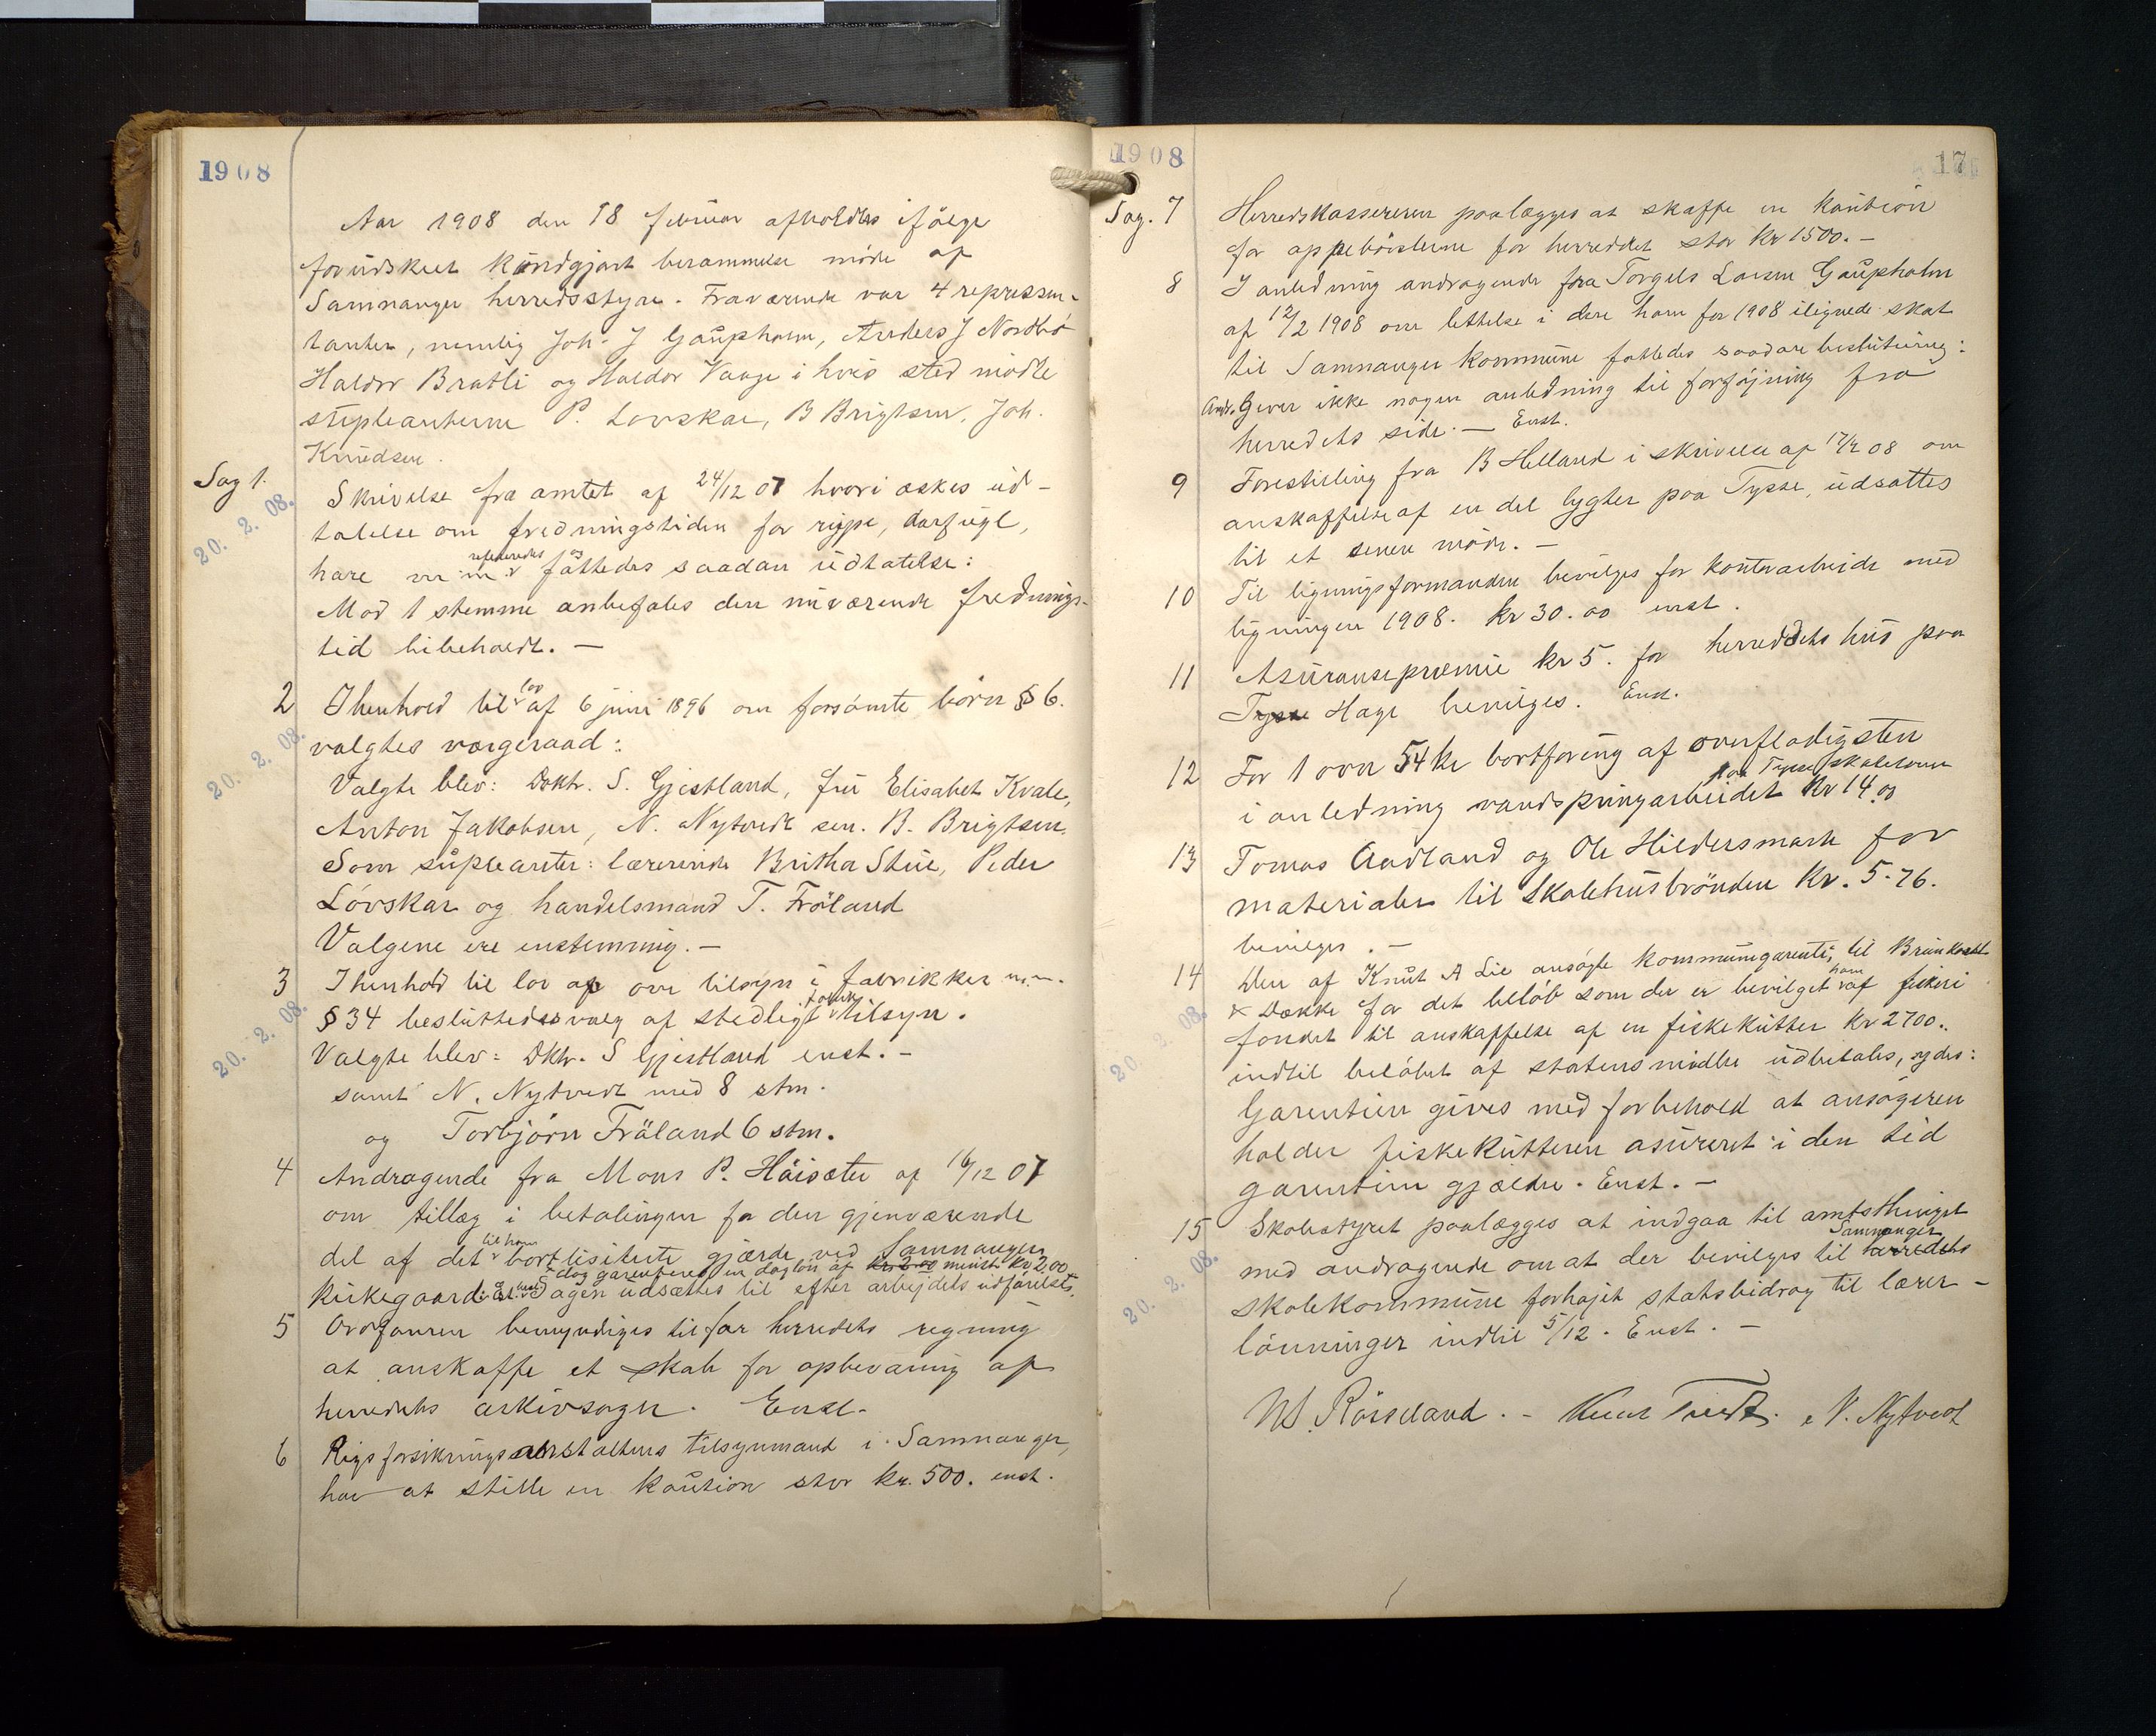 1908
Aar 1908 den 18 februar afholdtes ifölge
forudskeet kundgjort berammelse möde af
Samnanger herredsstyre. Fraværende var 4 represen-
tanter, nemlig Joh. J Gaupholm, Anders J Nordbö
Haldor Bratli og Haldor Vaage i hvis sted mödte
supleanterne P. Lövskar, B Brigtsen, Joh.
Knudsen.
Sag 1.
20. 2. 08.
Skrivelse fra amtet af 24/12 07 hvori æskes ud-
talelse om fredningstiden for rype, aarfugl,
refereredes og
hare m.m. fattedes saadan udtalelse:
Mod 1 stemme anbefales den nuværende frednings-
tid bibeholdt. -
2
lov
I henhold til af 6 juni 1896 om forsömte börn § 6.
20. 2. 08.
valgtes værgeraad:
Valgte blev: Doktr. S. Gjestland, frú Elisabet Kvale,
Anton Jakobsen, N. Nytvedt sen. B. Brigtsen.
Som supleanter: lærerinde Britha Stue, Peder
Lövskar og handelsmand T. Fröland
Valgene ere enstemmig. -
3
I henhold til lov af om tilsyn i fabrikker m.m.
20. 2. 08.
§ 34 besluttedes valg af stedligt tilsyn.
Valgte blev: Dktr. S Gjestland enst. -
samt N. Nytvedt med 8 stm.
og Torbjörn Fröland 6 stm.
4
Andragende fra Mons P. Höisæter af 16/12 07
om tillæg i betalingen for den gjenværende
til ham
del af det bortlisiterte gjærde ved Samnanger
dog garenteres en daglön af kr. 2.00 minst kr 2.00
kirkegaard: Sagen udsættes til efter arbejdets udförelse.
5
Ordföreren bemyndiges til for herredets regning
at anskaffe et skab for opbevaring af
herredets arkivsager. Enst.
6
Rigsforsikringsanstaltens tilsynmand i Samnanger,
har at stille en kaution stor kr. 500. enst.
1908
17
Sag. 7
Herredskassereren paalægges at skaffe en kaution
for oppebörslerne for herreddet stor kr 1500. -
8
I anledning andragende fra Torgels Larsen Gaupholm
af 12/2 1908 om lettelse i den ham for 1908 ilignede skat
til Samnanger kommune fattedes saadan beslutning:
Andr. Giver ikke nogen anledning til forföjning fra
herredets side. - Enst.
9
Forestilling fra B Helland i skrivelse af 17/2 08 om
anskaffelse af en del lygter paa Tysse, udsattes
til et senere möde. -
10
Til ligningsformanden bevilges for kontorarbeide med
ligningen 1908. kr 30.00 enst.
11
Asuransepræmie kr 5. for herreddets hus paa
Tysse Hage bevilges. Enst.
12
For 1 oven 54 kr bortföring af overflödig sten
paa Tysse skoletomt
i anledning vandspringarbeidet kr 14.00
13
Tomas Aadland og Ole Hildersmark for
materialer til skolehusbrönden kr. 5.76.
bevilges. -
14
20. 2. 08.
Den af Knut A Lie ansögte kommunegarenti, til Brunkorst
ham
& Dekke for det beløb som der er bevilget af fiskeri
fondet til anskaffelse af en fiskekutter kr 2700.
indtil belöbet af statens midler udbetales, ydes:
Garentien gives med forbehold at ansögeren
holder fiskekutteren asureret i den tid
garentien gjælder. Enst. -
15
20. 2. 08.
Skolestyret paalægges at indgaa til amtsthinget
Samnanger
med andragende om at der bevilges til herredets
skolekommune forhöjet statsbidrag til lærer-
lönninger indtil 5/12. Enst. -
M. Rösseland. - Knut Tveit. N. Nytvedt